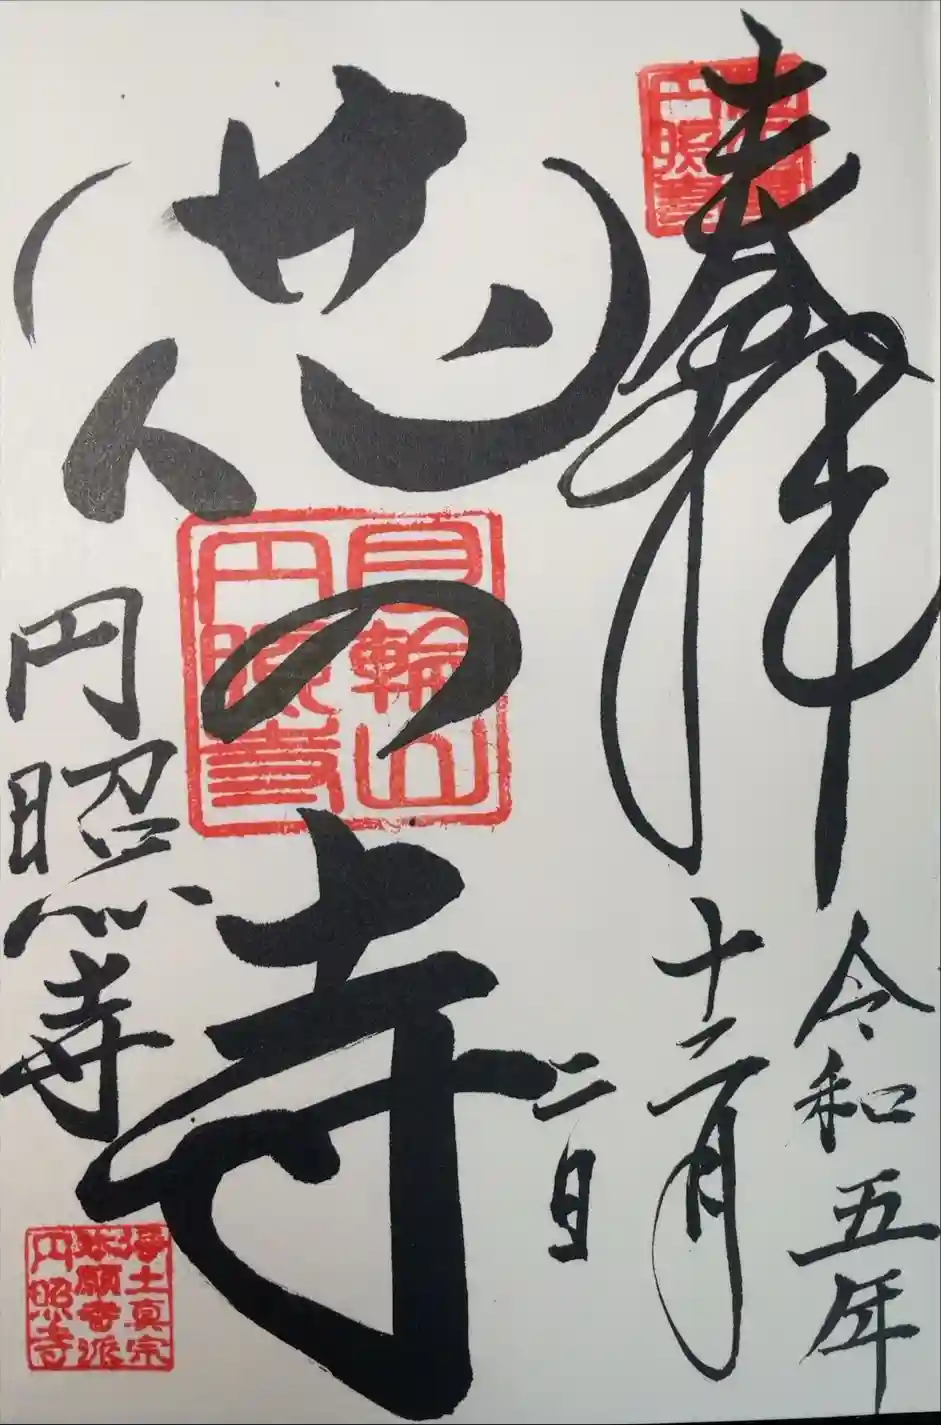 奉拝
令和五年
十二月
二日
花の寺
円照寺
円照寺
浄土真宗
本願寺派
円照寺